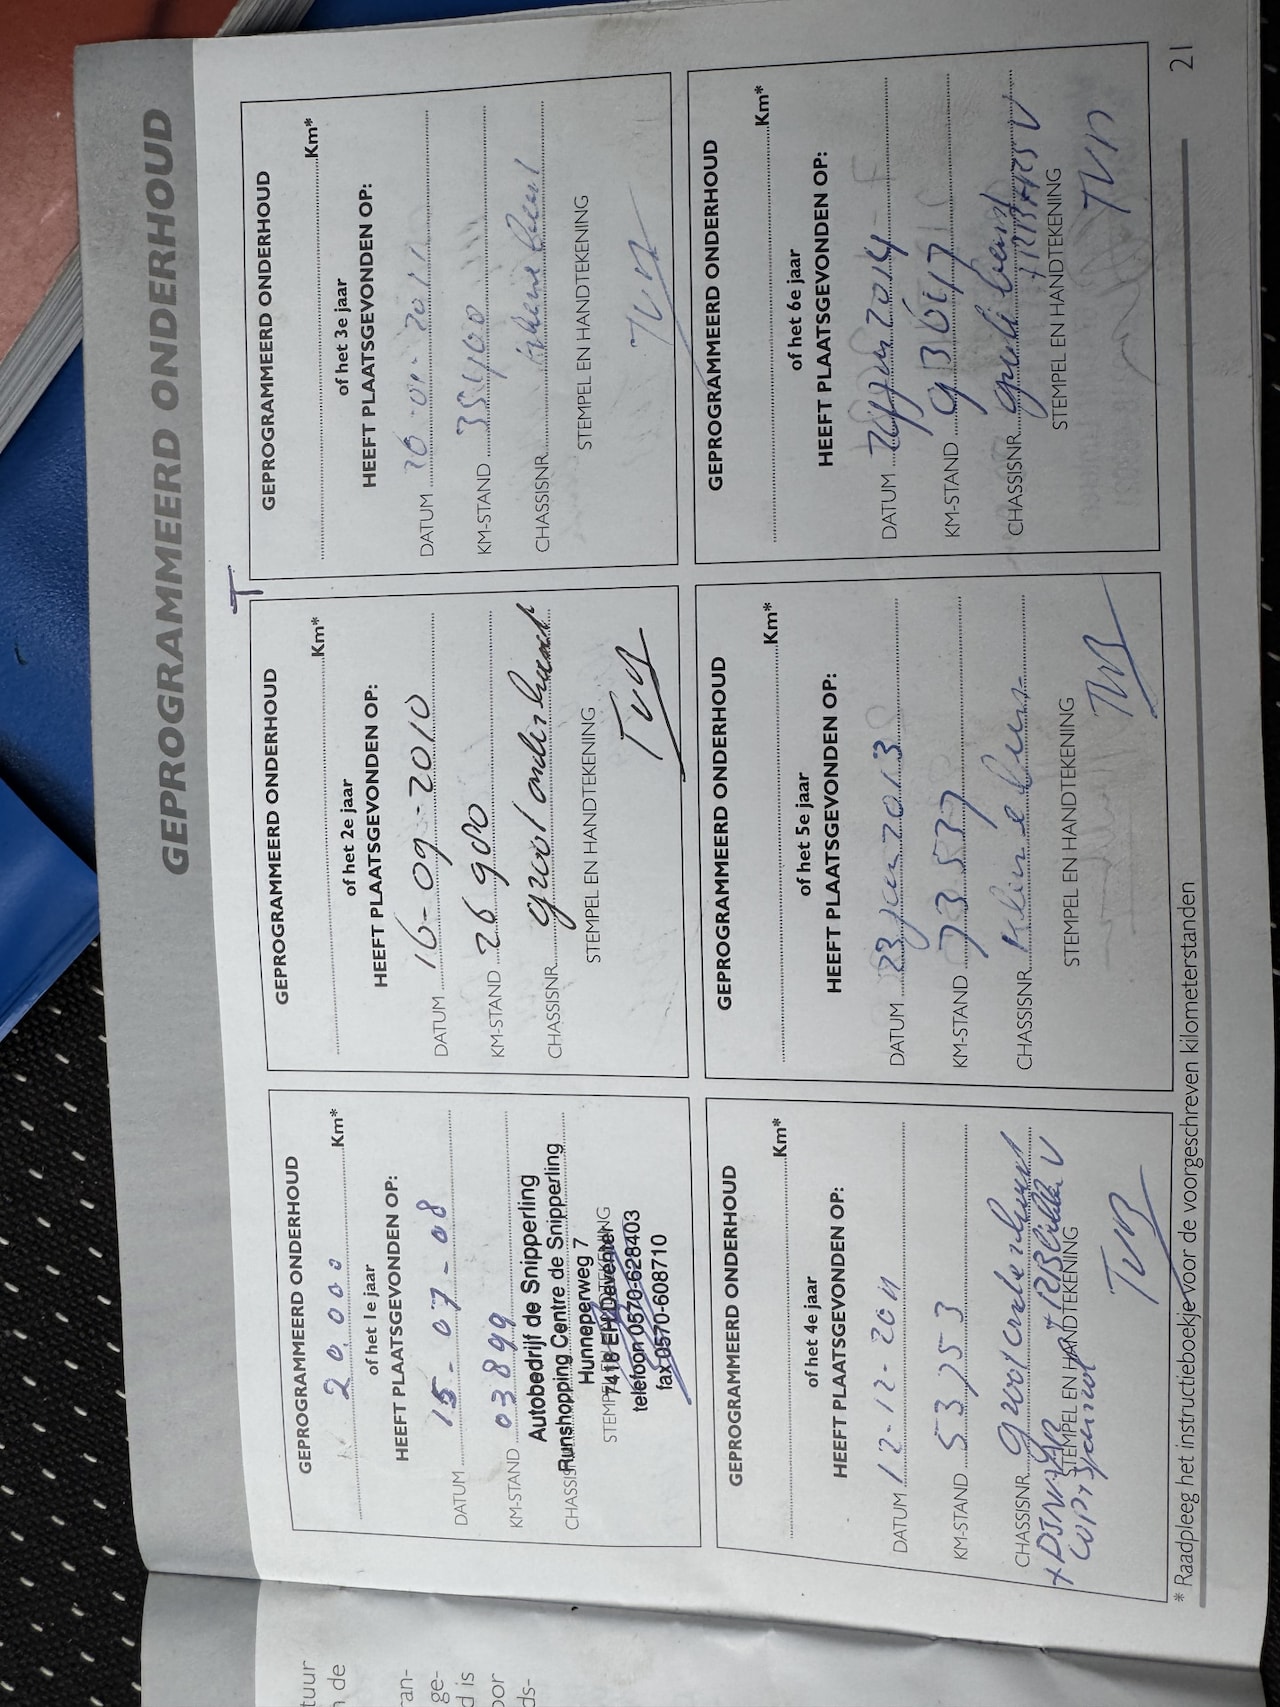 GEPROGRAMMEERD ONDERHOUD
GEPROGRAMMEERD ONDERHOUD
20.000 Km*
of het 1e jaar
HEEFT PLAATSGEVONDEN OP:
DATUM 15-07-08
KM-STAND 03899
CHASSISNR.
STEMPEL EN HANDTEKENING
Autobedrijf de Snipperling
Runshopping Centre de Snipperling
Hunneperweg 7
7418 EH Deventer
telefoon 0570-628403
fax 0570-608710
GEPROGRAMMEERD ONDERHOUD
Km*
of het 2e jaar
HEEFT PLAATSGEVONDEN OP:
DATUM 16-09-2010
KM-STAND 26900
CHASSISNR. groot onderbeurt
STEMPEL EN HANDTEKENING
GEPROGRAMMEERD ONDERHOUD
Km*
of het 3e jaar
HEEFT PLAATSGEVONDEN OP:
DATUM 2011
KM-STAND
CHASSISNR. beurt
STEMPEL EN HANDTEKENING
GEPROGRAMMEERD ONDERHOUD
Km*
of het 4e jaar
HEEFT PLAATSGEVONDEN OP:
DATUM 12-12-2011
KM-STAND 53753
CHASSISNR.
STEMPEL EN HANDTEKENING
GEPROGRAMMEERD ONDERHOUD
Km*
of het 5e jaar
HEEFT PLAATSGEVONDEN OP:
DATUM 23 jan 2013
KM-STAND 73537
CHASSISNR. kleine beurt
STEMPEL EN HANDTEKENING
GEPROGRAMMEERD ONDERHOUD
Km*
of het 6e jaar
HEEFT PLAATSGEVONDEN OP:
DATUM 2014
KM-STAND 93617
CHASSISNR. beurt
STEMPEL EN HANDTEKENING
* Raadpleeg het instructieboekje voor de voorgeschreven kilometerstanden
21